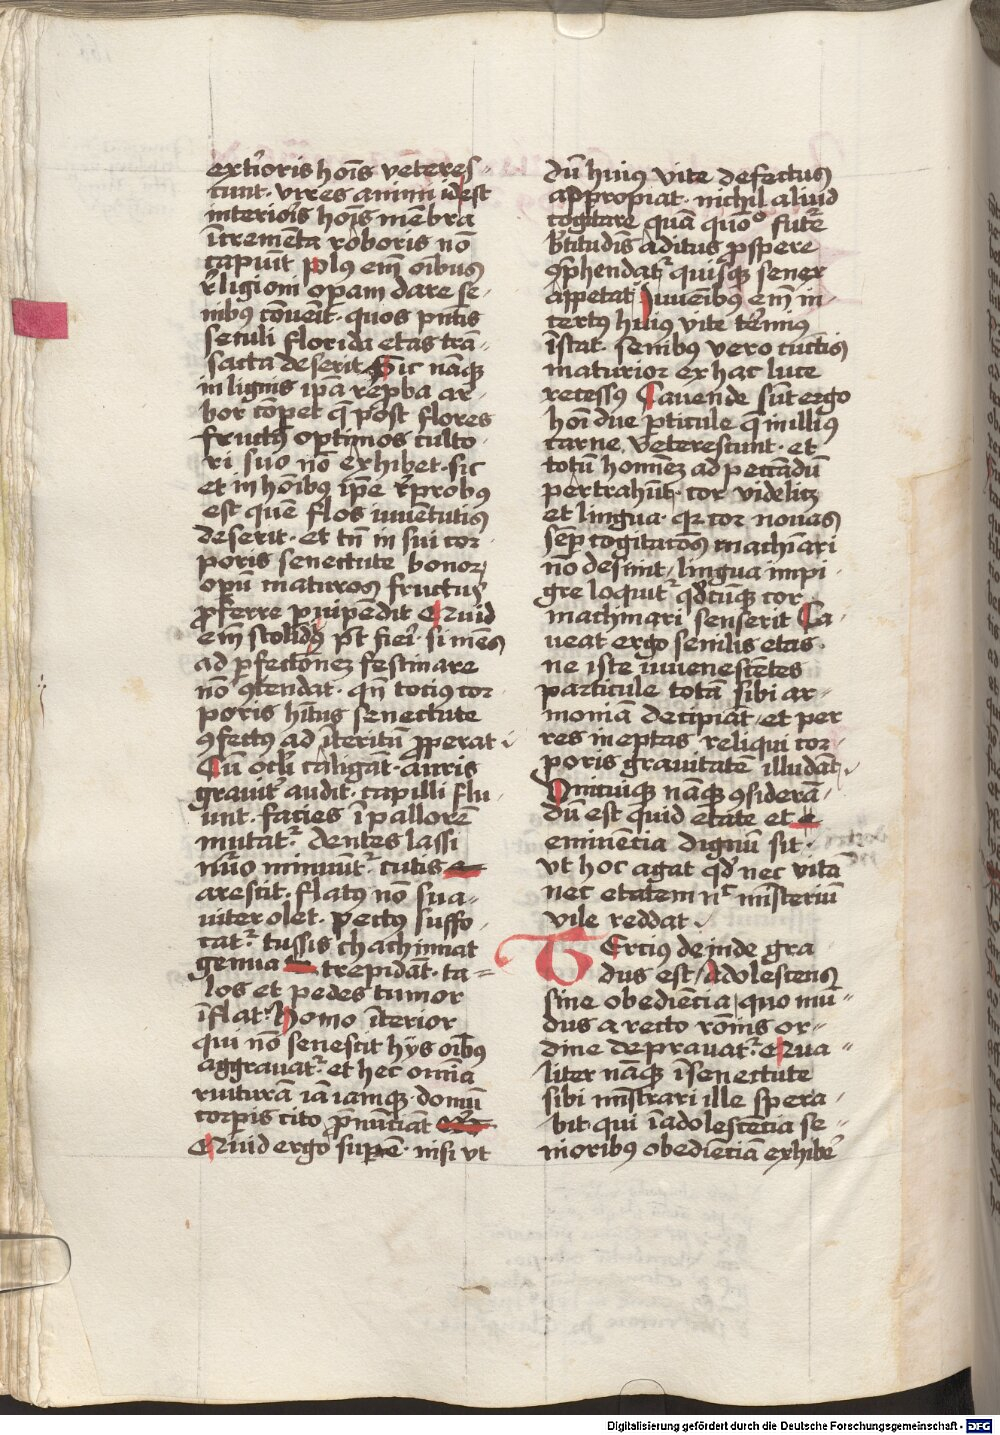 extīoris hoīs veteres-
cunt · vires animi idest
interiois hoīs mēbra
īcremēta roboris nō
capiūt Plus em̄ oībus
r̄ligioni operam dare se-
nibus cōuēit · quos pn̄tis
seculi florida etas trā-
sacta deserit Sic nāqꝫ
in lignis ip̄a rep̄ba ar-
bor cōꝑet q̄ post flores
fructus optimos culto-
ri suo nō exhibet · sic
et in hoībus ip̄e r̄probus
est quē flos iuuentutis
deserit · et tn̄ in sui cor-
poris senectute bonoꝝ
opū maturos fructus
ꝓferre ꝑuipēdit Quid
em̄ stolidius pt̄ fieri · si mēs
ad ꝑfectōnez festinare
nō ꝯtendat · qn̄ tocius cor-
poris hītus senectute
ꝯfectus ad īteritū ꝓperat ·
Cū ocli caligāt · auris
grauit̄ audit · capilli flu-
unt · facies ī pallorē
mutat᷑ · dentes lassi
nūo minuūt᷑ · cutis
arescit · flatus nō sua-
uiter olet · pectus suffo-
cat᷑ · tussis chachinnat
genua trepidāt · ta-
los et pedes tumor
īflat · Homo īterior
qui nō senescit hijs oībus
aggrauat᷑ · et hec omīa
ruiturā iā iamqꝫ domū
corpis cito p̄nūciāt
Quid ergo suꝑē · nisi vt
dū huius vite defectus
appropiat · nichil aliud
cogitare quā quōo futr̄e
b̄titudīs aditus ꝓspere
ꝯp̄hendat᷑ quisqꝫ senex
appetat Iuuēibus em̄ in-
certus huius vite t̄mius
īstat · senibus vero cūctis
maturior ex hac luce
recessus Cauende sūt ergo
hoī due ꝑticule q̄ in illius
carne veterescunt · et
totū hominez ad peccādū
pertrahūt · cor videlicz
et lingua · qꝛ cor nouas
semꝑ cogitacōes machīari
nō desinit / lingua impi-
gre loquit᷑ qdcūqꝫ cor
machinari senserit Ca-
ueat ergo senilis etas ·
ne iste iuuenescētes
particule totā sibi ar-
moniā decipiāt / et per
res ineptas reliqui cor-
poris grauitatē illudāt ·
Vnicuiqꝫ nāqꝫ ꝯsiderā-
dū est quid etate et
eminēcia dignū sit ·
vt hoc agat qd nec vitā
nec etatem nc misteriū
vile reddat ·
TErcius deinde gra-
dus est / Adolescens
sine obediēcia / quo mū-
dus a recto rōnis or-
dine deprauat᷑ · Qua-
liter nāqꝫ ī senectute
sibi mīstrari ille spera-
bit · qui ī adolescētia se-
nioribus obediēciā exhibe᷑
Digitalisierung gefördert durch die Deutsche Forschungsgemeinschaft - DFG